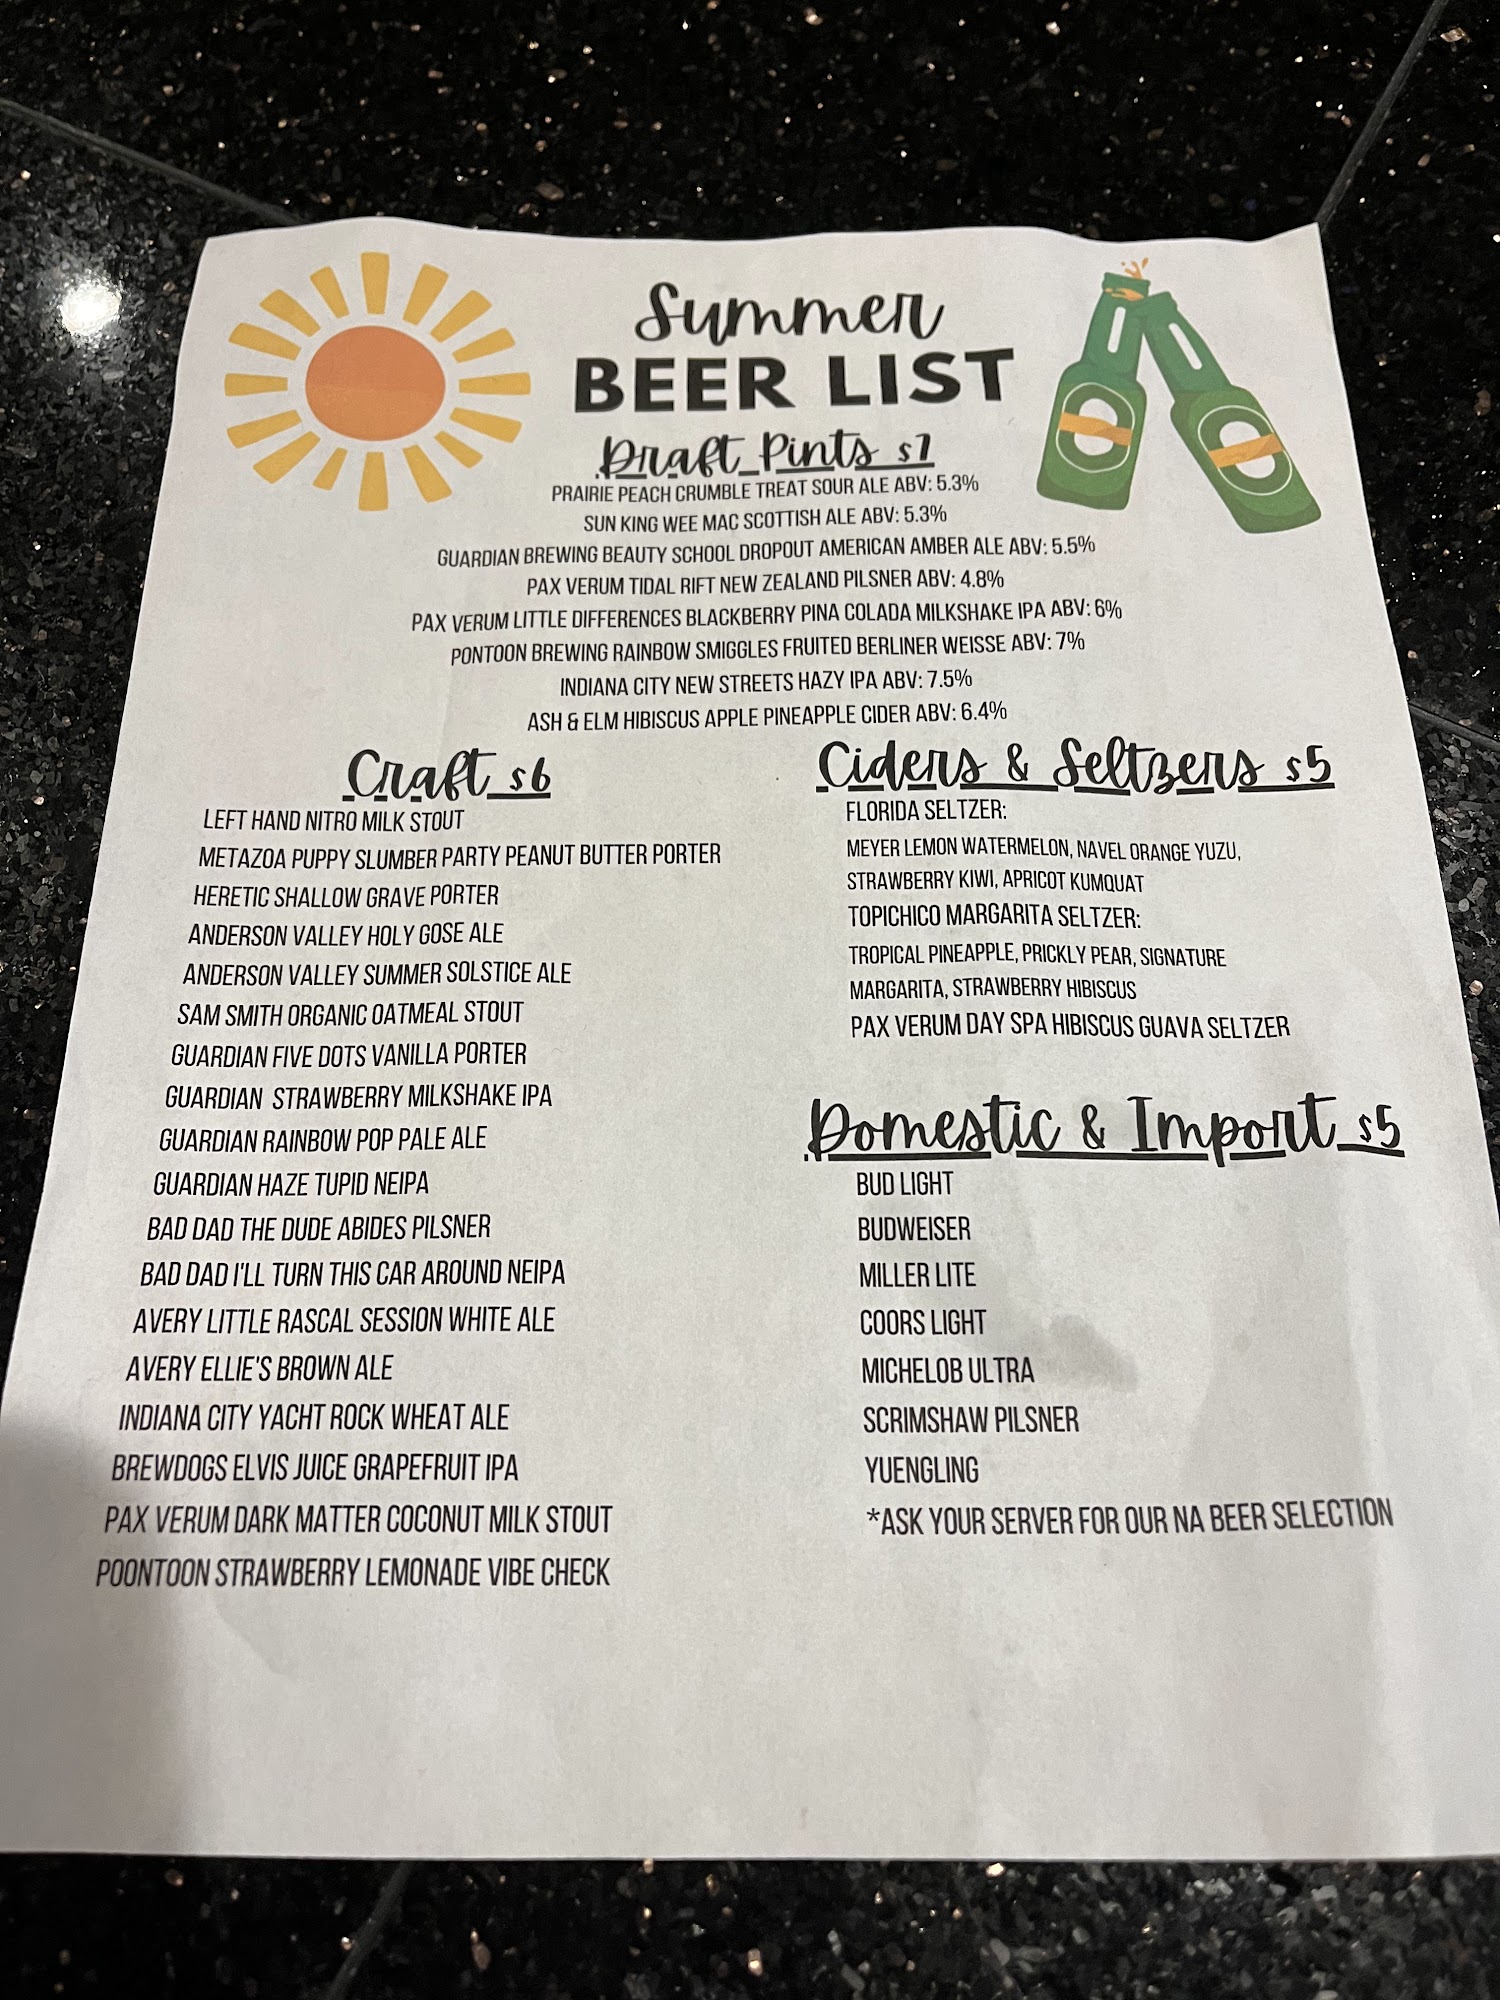 Summer
BEER LIST
Draft Pints $7
PRAIRIE PEACH CRUMBLE TREAT SOUR ALE ABV: 5.3%
SUN KING WEE MAC SCOTTISH ALE ABV: 5.3%
GUARDIAN BREWING BEAUTY SCHOOL DROPOUT AMERICAN AMBER ALE ABV: 5.5%
PAX VERUM TIDAL RIFT NEW ZEALAND PILSNER ABV: 4.8%
PAX VERUM LITTLE DIFFERENCES BLACKBERRY PINA COLADA MILKSHAKE IPA ABV: 6%
PONTOON BREWING RAINBOW SMIGGLES FRUITED BERLINER WEISSE ABV: 7%
INDIANA CITY NEW STREETS HAZY IPA ABV: 7.5%
ASH & ELM HIBISCUS APPLE PINEAPPLE CIDER ABV: 6.4%
Craft $6
LEFT HAND NITRO MILK STOUT
METAZOA PUPPY SLUMBER PARTY PEANUT BUTTER PORTER
HERETIC SHALLOW GRAVE PORTER
ANDERSON VALLEY HOLY GOSE ALE
ANDERSON VALLEY SUMMER SOLSTICE ALE
SAM SMITH ORGANIC OATMEAL STOUT
GUARDIAN FIVE DOTS VANILLA PORTER
GUARDIAN STRAWBERRY MILKSHAKE IPA
GUARDIAN RAINBOW POP PALE ALE
GUARDIAN HAZE TUPID NEIPA
BAD DAD THE DUDE ABIDES PILSNER
BAD DAD I'LL TURN THIS CAR AROUND NEIPA
AVERY LITTLE RASCAL SESSION WHITE ALE
AVERY ELLIE'S BROWN ALE
INDIANA CITY YACHT ROCK WHEAT ALE
BREWDOGS ELVIS JUICE GRAPEFRUIT IPA
PAX VERUM DARK MATTER COCONUT MILK STOUT
POONTOON STRAWBERRY LEMONADE VIBE CHECK
Ciders & Seltzers $5
FLORIDA SELTZER:
MEYER LEMON WATERMELON, NAVEL ORANGE YUZU,
STRAWBERRY KIWI, APRICOT KUMQUAT
TOPICHICO MARGARITA SELTZER:
TROPICAL PINEAPPLE, PRICKLY PEAR, SIGNATURE
MARGARITA, STRAWBERRY HIBISCUS
PAX VERUM DAY SPA HIBISCUS GUAVA SELTZER
Domestic & Import $5
BUD LIGHT
BUDWEISER
MILLER LITE
COORS LIGHT
MICHELOB ULTRA
SCRIMSHAW PILSNER
YUENGLING
*ASK YOUR SERVER FOR OUR NA BEER SELECTION